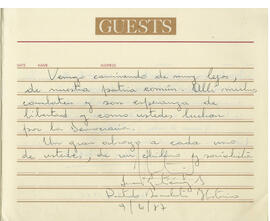 GUESTS
DATE NAME ADDRESS
Vengo caminando de muy lejos,
de nuestra patria común. Allí muchos
combaten y son esperanza de
libertad y como ustedes luchan
por la Democracia.
Un gran abrazo a cada uno
de ustedes, de un chileno y socialista
Partido Socialista Histórico
9/6/87